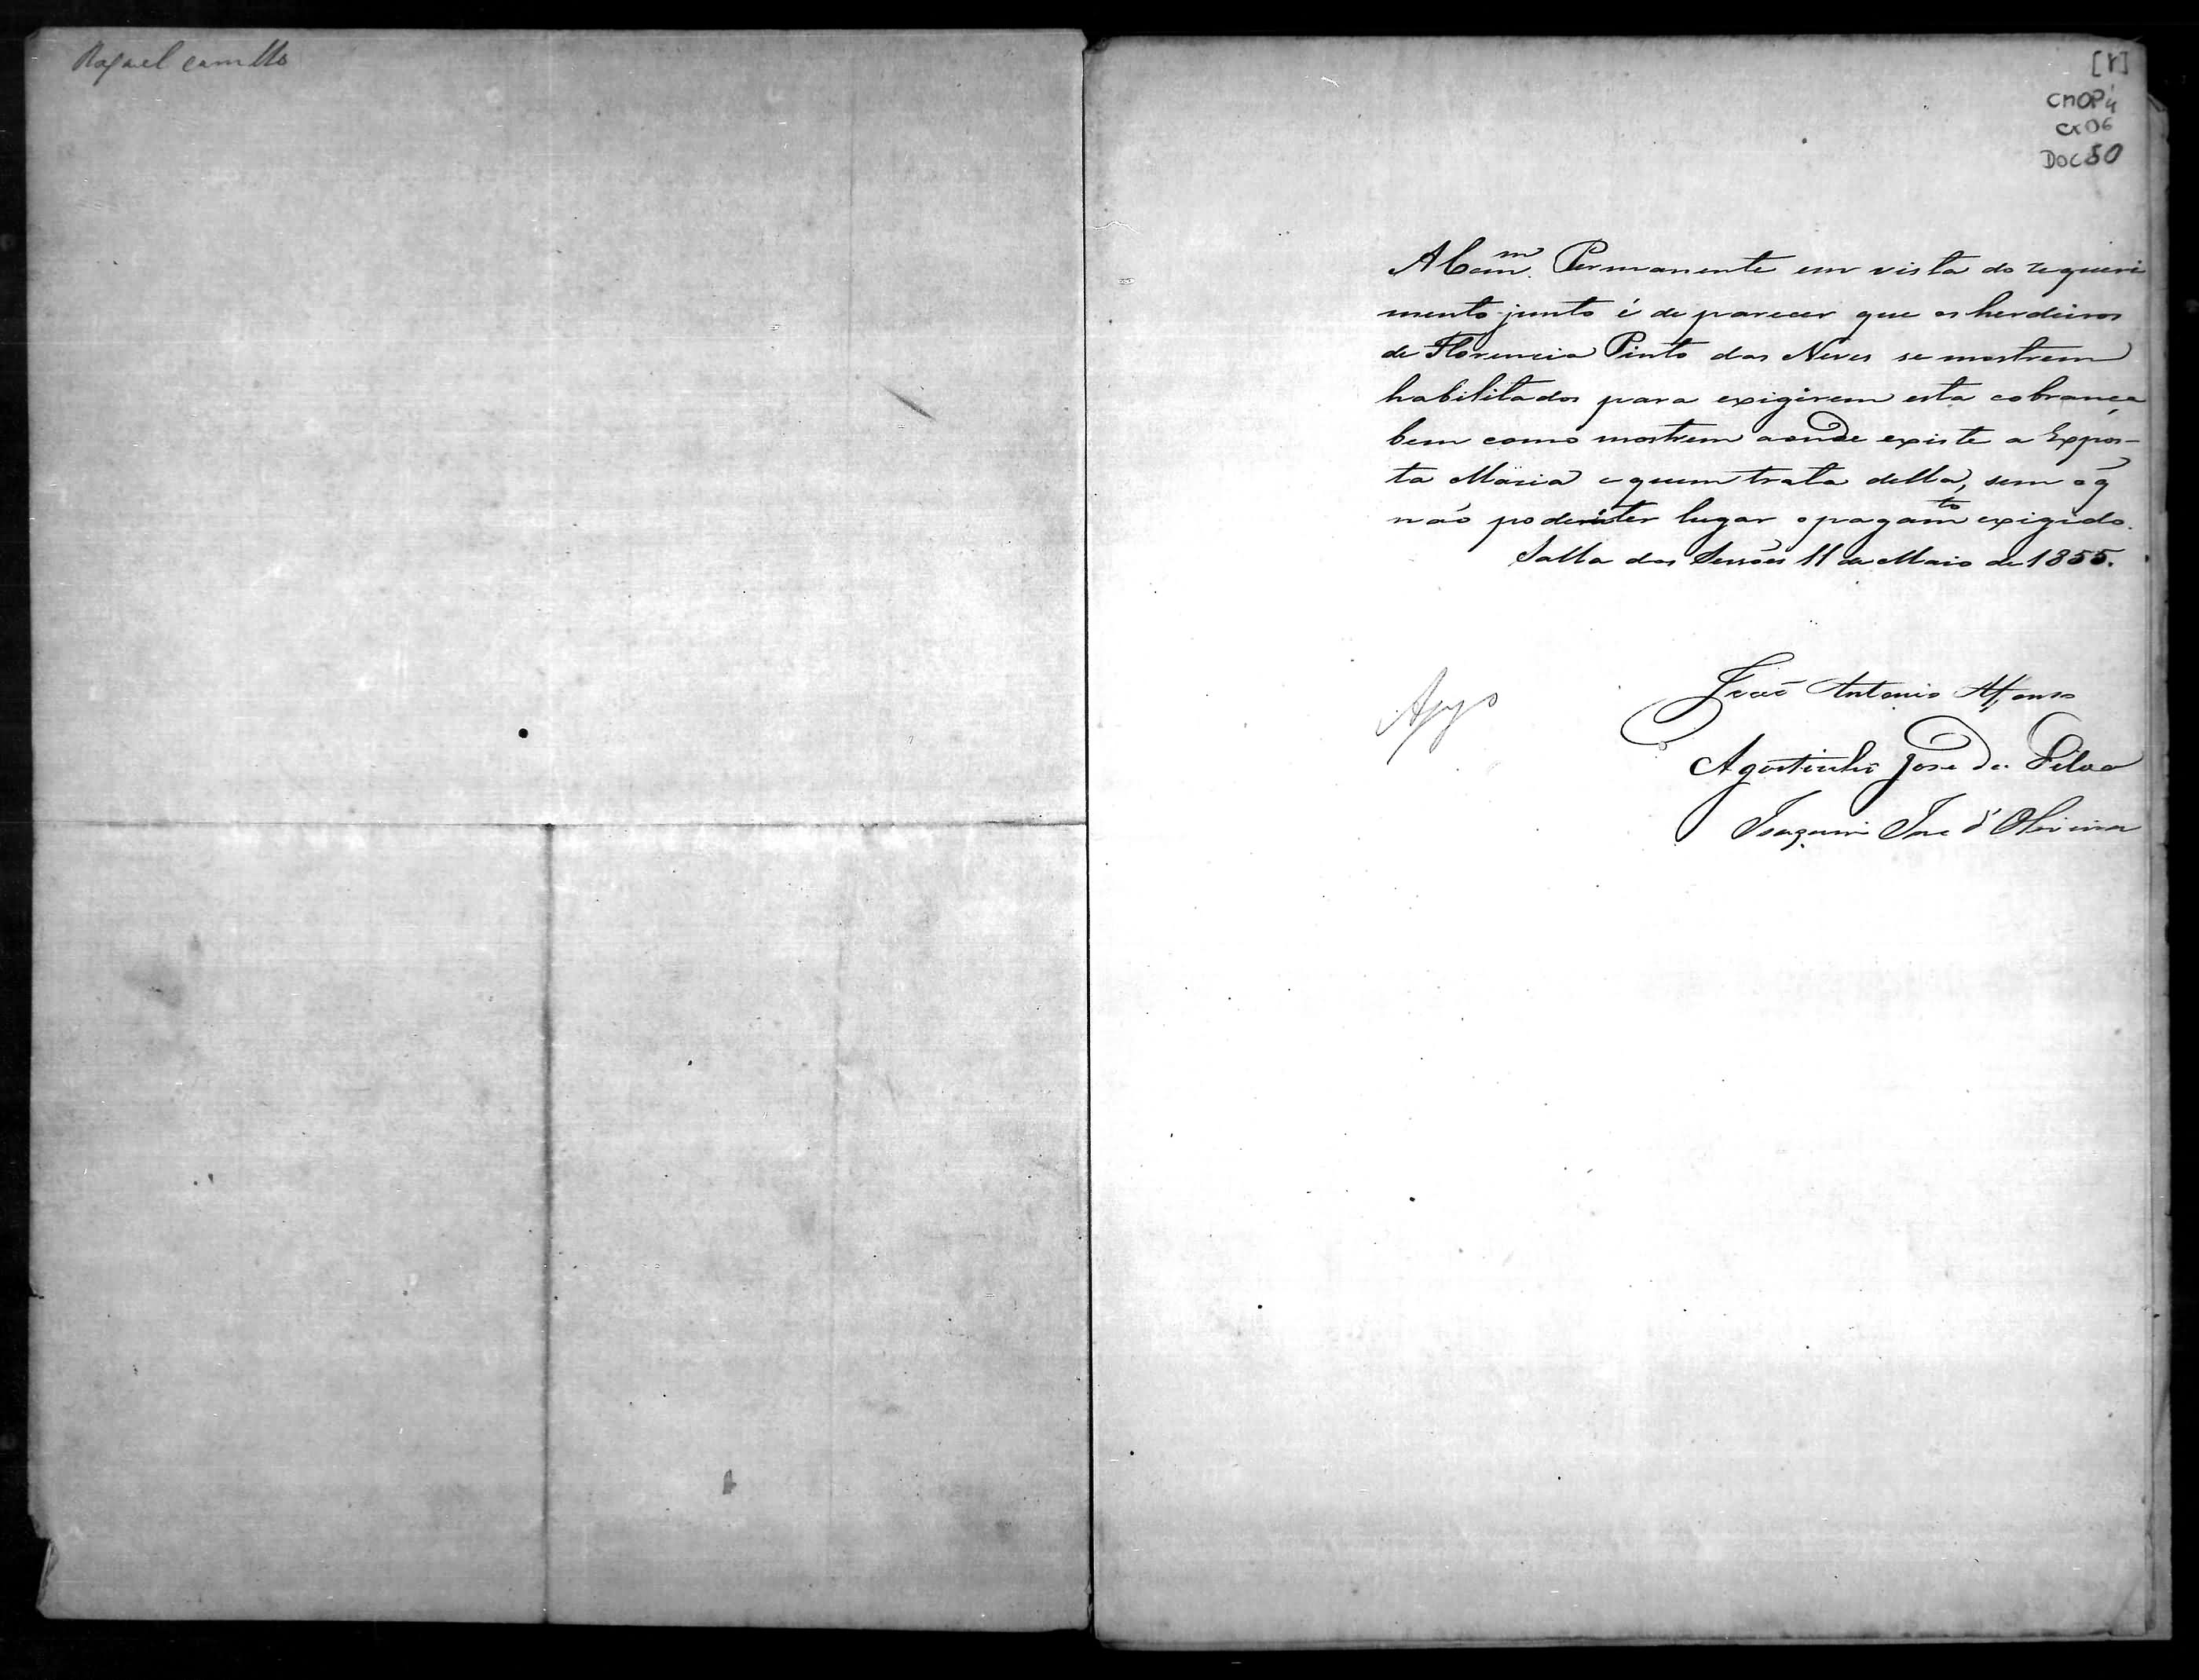 Rafael Camillo
[r]
CMOP
CX 06
DOC 50
A Com.m Permanente em vista do requeri
mento junto é de parecer que os herdeiros
de Florencia Pinto das Neves se mostrem
habilitados para exigirem esta cobrança
bem como mostrem aonde existe a Expos-
ta Maria e quem trata della, sem o q̃
não poderá ter lugar o pagamto exigido.
Salla das Sessões 11 de Maio de 1855.
José Antonio Affonso
Agostinho José da Silva
Joaquim Jose d'Oliveira